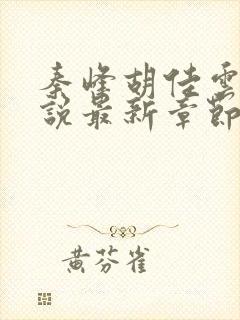 秦峰胡佳雲
說最新章節
黃芬雀